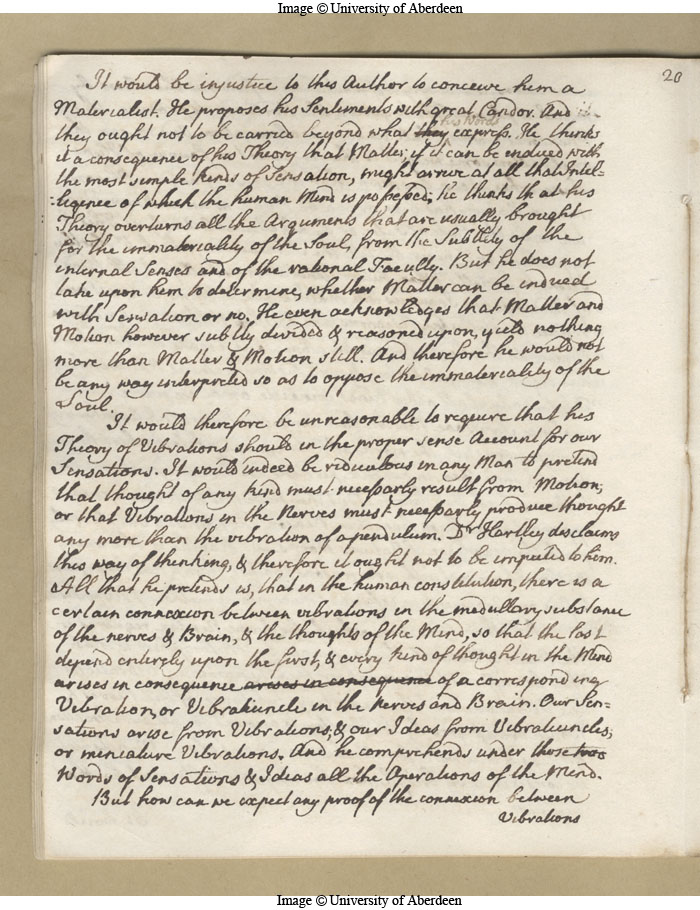 Image © University of Aberdeen
20
It would be injustice to this Author to conceive him a
Materialist. He proposes his Sentiments with great Candor. And
his Words
they ought not to be carried beyond what they express. He thinks
it a consequence of his Theory that Matter, if it can be endued with
the most simple kinds of Sensation, might arrive at all that Intel=
:ligence of which the human Mind is possessed; he thinks that his
Theory overturns all the Arguments that are usually brought
for the immateriality of the Soul, from the Subtility of the
internal Senses and of the rational Faculty. But he does not
take upon him to determine, whether Matter can be indued
with Sensation or no. He even acknowledges that Matter and
Motion however subtly divided & reasoned upon, yield nothing
more than Matter & Motion still. And therefore he would not
be any way interpreted so as to oppose the immateriality of the
Soul.
It would therefore be unreasonable to require that his
Theory of Vibrations should in the proper sense Account for our
Sensations. It would indeed be ridiculous in any Man to pretend
that thought of any kind must necessarly result from Motion;
or that Vibrations in the Nerves must necessarly produce thought
any more than the vibration of a pendulum. Dr Hartley disclaims
this way of thinking, & therefore it ought not to be imputed to him.
All that he pretends is, that in the human constitution, there is a
certain connexion between vibrations in the medullary substance
of the nerves & Brain, & the thoughts of the Mind, so that the last
depend entirely upon the first, & every kind of thought in the Mind
arises in consequence arises in consequence of a corresponding
Vibration, or Vibratiuncle in the nerves and Brain. Our Sen=
sations arise from Vibrations, & our Ideas from Vibratiuncles,
or meniature Vibrations. And he comprehends under those two
Words of Sensations & Ideas all the Operations of the Mind.
But how can we expect any proof of the connexion between
Vibrations
Image © University of Aberdeen